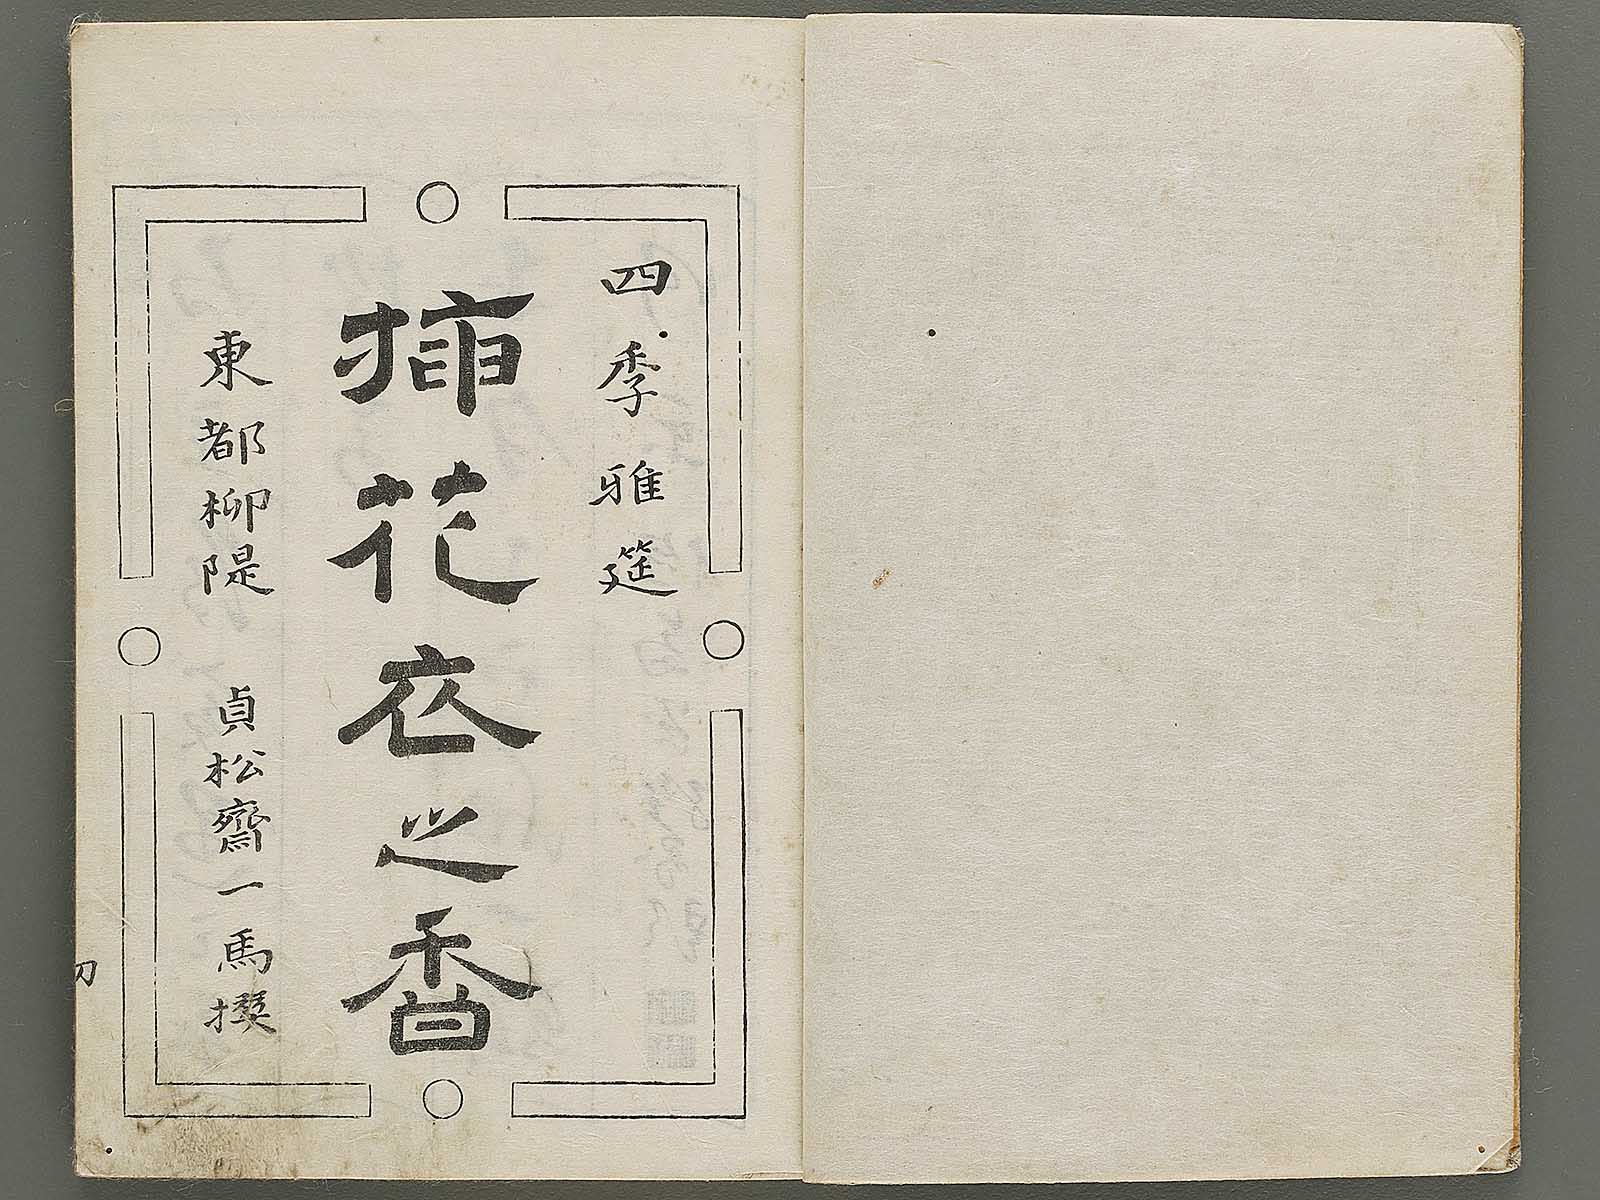 四季雅筵
挿花衣之香
東都柳隄 貞松齋一馬撰
刀